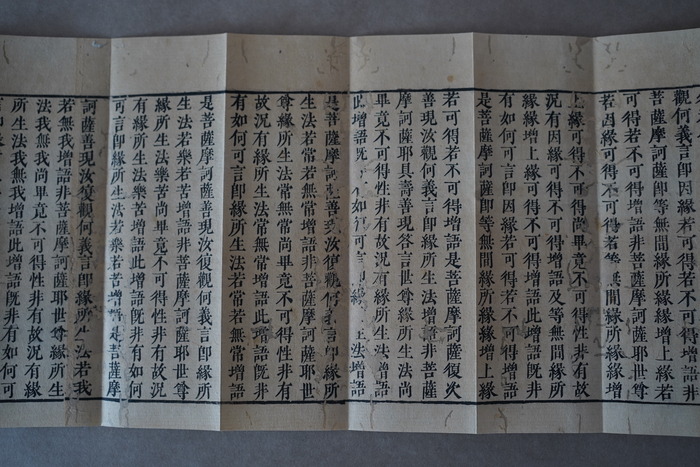 觀何義言即因緣若可得若不可得增語非
菩薩摩訶薩即等無間緣所緣緣增上緣若
可得若不可得增語非菩薩摩訶薩耶世尊
若因緣可得不可得若等無間緣所緣緣增
上緣可得不可得尚畢竟不可得性非有故
況有因緣可得不可得增語及等無間緣所
緣緣增上緣可得不可得增語此增語既非
有如何可言即因緣若可得若不可得增語
是菩薩摩訶薩即等無間緣所緣緣增上緣
若可得若不可得增語是菩薩摩訶薩復次
善現汝觀何義言即緣所生法增語非菩薩
摩訶薩耶具壽善現答言世尊緣所生法尚
畢竟不可得性非有故況有緣所生法增語
此增語既非有如何可言即緣所生法增語
是菩薩摩訶薩善現汝復觀何義言即緣所
生法若常若無常增語非菩薩摩訶薩耶世
尊緣所生法常無常尚畢竟不可得性非有
故況有緣所生法常無常增語此增語既非
有如何可言即緣所生法若常若無常增語
是菩薩摩訶薩善現汝復觀何義言即緣所
生法若樂若苦增語非菩薩摩訶薩耶世尊
緣所生法樂苦尚畢竟不可得性非有故況
有緣所生法樂苦增語此增語既非有如何
可言即緣所生法若樂若苦增語是菩薩摩
訶薩善現汝復觀何義言即緣所生法若我
若無我增語非菩薩摩訶薩耶世尊緣所生
法我無我尚畢竟不可得性非有故況有緣
所生法我無我增語此增語既非有如何可